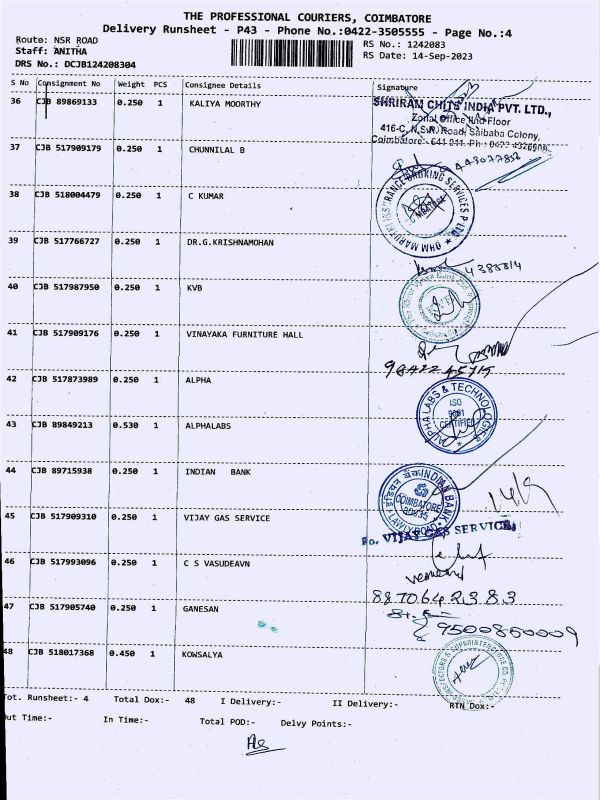 THE PROFESSIONAL COURIERS, COIMBATORE
Delivery Runsheet - P43 - Phone No.:0422-3505555 - Page No.:4
Route: NSR ROAD RS No.: 1242083
Staff: ANITHA RS Date: 14-Sep-2023
DRS No.: DCJB124208304
S No Consignment No Weight PCS Consignee Details Signature
36 CJB 89869133 0.250 1 KALIYA MOORTHY
SHRIRAM CHITS INDIA PVT. LTD.,
Zonal Office IInd Floor
416-C, N.S.R. Road, Saibaba Colony,
Coimbatore - 641 011. Ph : 0422
37 CJB 517909179 0.250 1 CHUNNILAL B
38 CJB 518004479 0.250 1 C KUMAR
INSURANCE BROKING SERVICES P LTD
COIMBATORE
39 CJB 517766727 0.250 1 DR.G.KRISHNAMOHAN
40 CJB 517987950 0.250 1 KVB
41 CJB 517909176 0.250 1 VINAYAKA FURNITURE HALL
42 CJB 517873989 0.250 1 ALPHA
ALPHA LABS & TECHNOLOGIES
ISO
9001
CERTIFIED
43 CJB 89849213 0.530 1 ALPHALABS
44 CJB 89715938 0.250 1 INDIAN BANK
इंडियन बैंक INDIAN BANK
COIMBATORE
45 CJB 517909310 0.250 1 VIJAY GAS SERVICE
Fo. VIJAY GAS SERVICE,
46 CJB 517993096 0.250 1 C S VASUDEAVN
8870642383
47 CJB 517905740 0.250 1 GANESAN
9500860009
48 CJB 518017368 0.450 1 KOWSALYA
Tot. Runsheet:- 4 Total Dox:- 48 I Delivery:- II Delivery:- RTN Dox:-
Out Time:- In Time:- Total POD:- Delvy Points:-